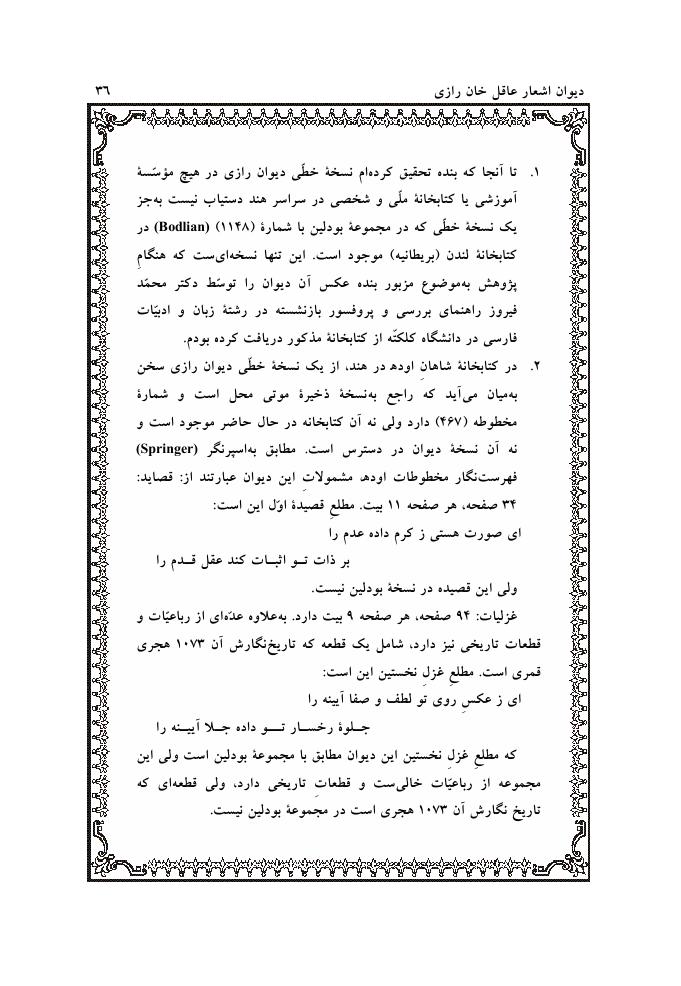 دیوان اشعار عاقل خان رازی ۳۶
۱. تا آنجا که بنده تحقیق کرده‌ام نسخهٔ خطّی دیوان رازی در هیچ مؤسّسهٔ
آموزشی یا کتابخانهٔ ملّی و شخصی در سراسر هند دستیاب نیست به‌جز
یک نسخهٔ خطّی که در مجموعهٔ بودلین با شمارهٔ (۱۱۴۸) (Bodlian) در
کتابخانهٔ لندن (بریطانیه) موجود است. این تنها نسخه‌ای‌ست که هنگامِ
پژوهش به‌موضوع مزبور بنده عکس آن دیوان را توسّط دکتر محمّد
فیروز راهنمای بررسی و پروفسور بازنشسته در رشتهٔ زبان و ادبیّات
فارسی در دانشگاه کلکتّه از کتابخانهٔ مذکور دریافت کرده بودم.
۲. در کتابخانهٔ شاهانِ اوده در هند، از یک نسخهٔ خطّی دیوان رازی سخن
به‌میان می‌آید که راجع به‌نسخهٔ ذخیرهٔ موتی محل است و شمارهٔ
مخطوطه (۴۶۷) دارد ولی نه آن کتابخانه در حال حاضر موجود است و
نه آن نسخهٔ دیوان در دسترس است. مطابق به‌اسپرنگر (Springer)
فهرست‌نگار مخطوطات اوده، مشمولاتِ این دیوان عبارتند از: قصاید:
۳۴ صفحه، هر صفحه ۱۱ بیت. مطلعِ قصیدهٔ اوّل این است:
ای صورت هستی ز کرم داده عدم را
بر ذات تـو اثبـات کند عقل قـدم را
ولی این قصیده در نسخهٔ بودلین نیست.
غزلیات: ۹۴ صفحه، هر صفحه ۹ بیت دارد. به‌علاوه عدّه‌ای از رباعیّات و
قطعات تاریخی نیز دارد، شامل یک قطعه که تاریخ‌نگارش آن ۱۰۷۳ هجری
قمری است. مطلعِ غزلِ نخستین این است:
ای ز عکسِ روی تو لطف و صفا آیینه را
جـلوهٔ رخسـار تـــو داده جـلا آییـنه را
که مطلعِ غزل نخستین این دیوان مطابق با مجموعهٔ بودلین است ولی این
مجموعه از رباعیّات خالی‌ست و قطعاتِ تاریخی دارد، ولی قطعه‌ای که
تاریخ نگارش آن ۱۰۷۳ هجری است در مجموعهٔ بودلین نیست.